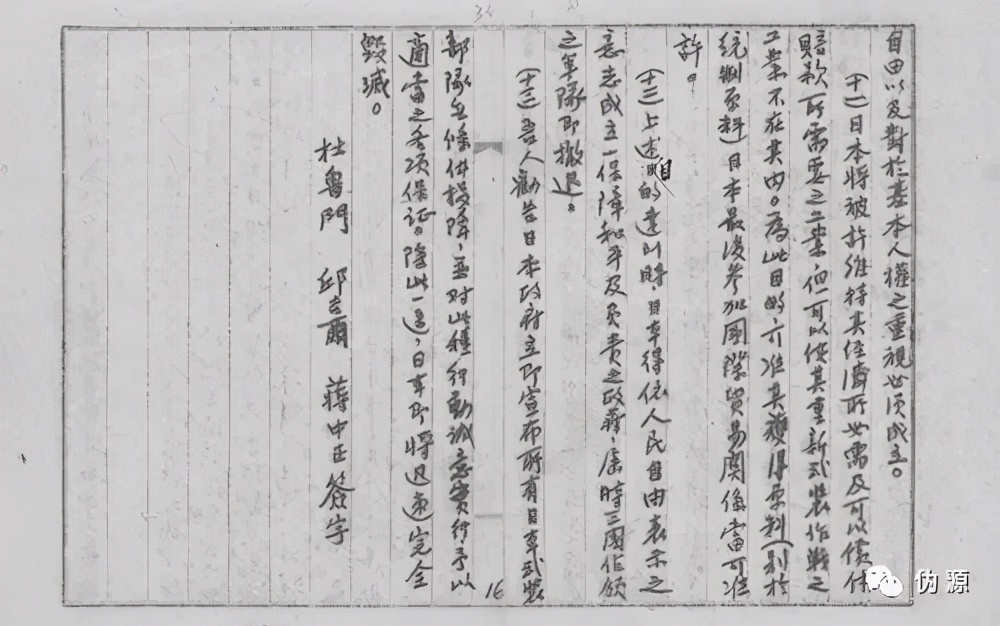 自由以及對於基本人權之重視必須成立。
(十一)日本將被許維持其經濟所必需及可以償付
賠款所需要之工業,但可以使其重新武裝作戰之
工業不在其内。為此目的,可准其獲得原料(别於
統制原料)日本最後參加國際貿易關係當可准
許。
(十二)上述目的達到時,日本得依人民自由表示之
意志成立一保障和平及負責之政府,届時三國佔領
之軍隊即撤退。
(十三)吾人勸告日本政府立即宣布所有日本武裝
部隊無條件投降,並对此種行動誠意實行予以
適當之各項保証。除此一途,日本即將迅速完全
毀滅。
杜魯門 邱吉爾 蔣中正 簽字
16
伪源